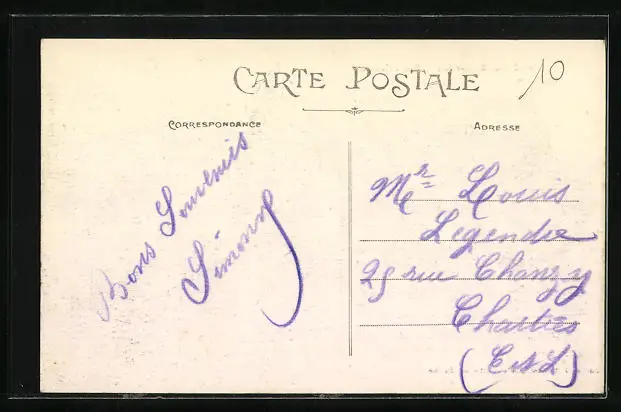 CARTE POSTALE
10
CORRESPONDANCE
ADRESSE
Bons Souvenirs
Simony
Mr Louis
Legendre
25 rue Chanzy
Chartres
(E & L)